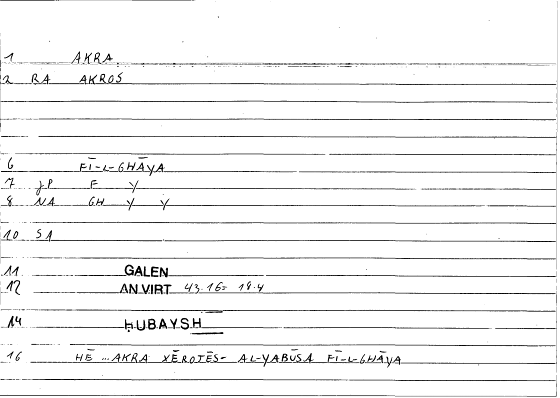 1 AKRA
2 RA AKROS
6 FĪ-L-GHĀYA
7 JP F Y
8 NA GH Y Y
10 SA
11 GALEN
12 AN VIRT 43.16= 19.4
14 ḤUBAYSH
16 HĒ ...AKRA XĒROTĒS- AL-YABŪSA FĪ-L-GHĀYA